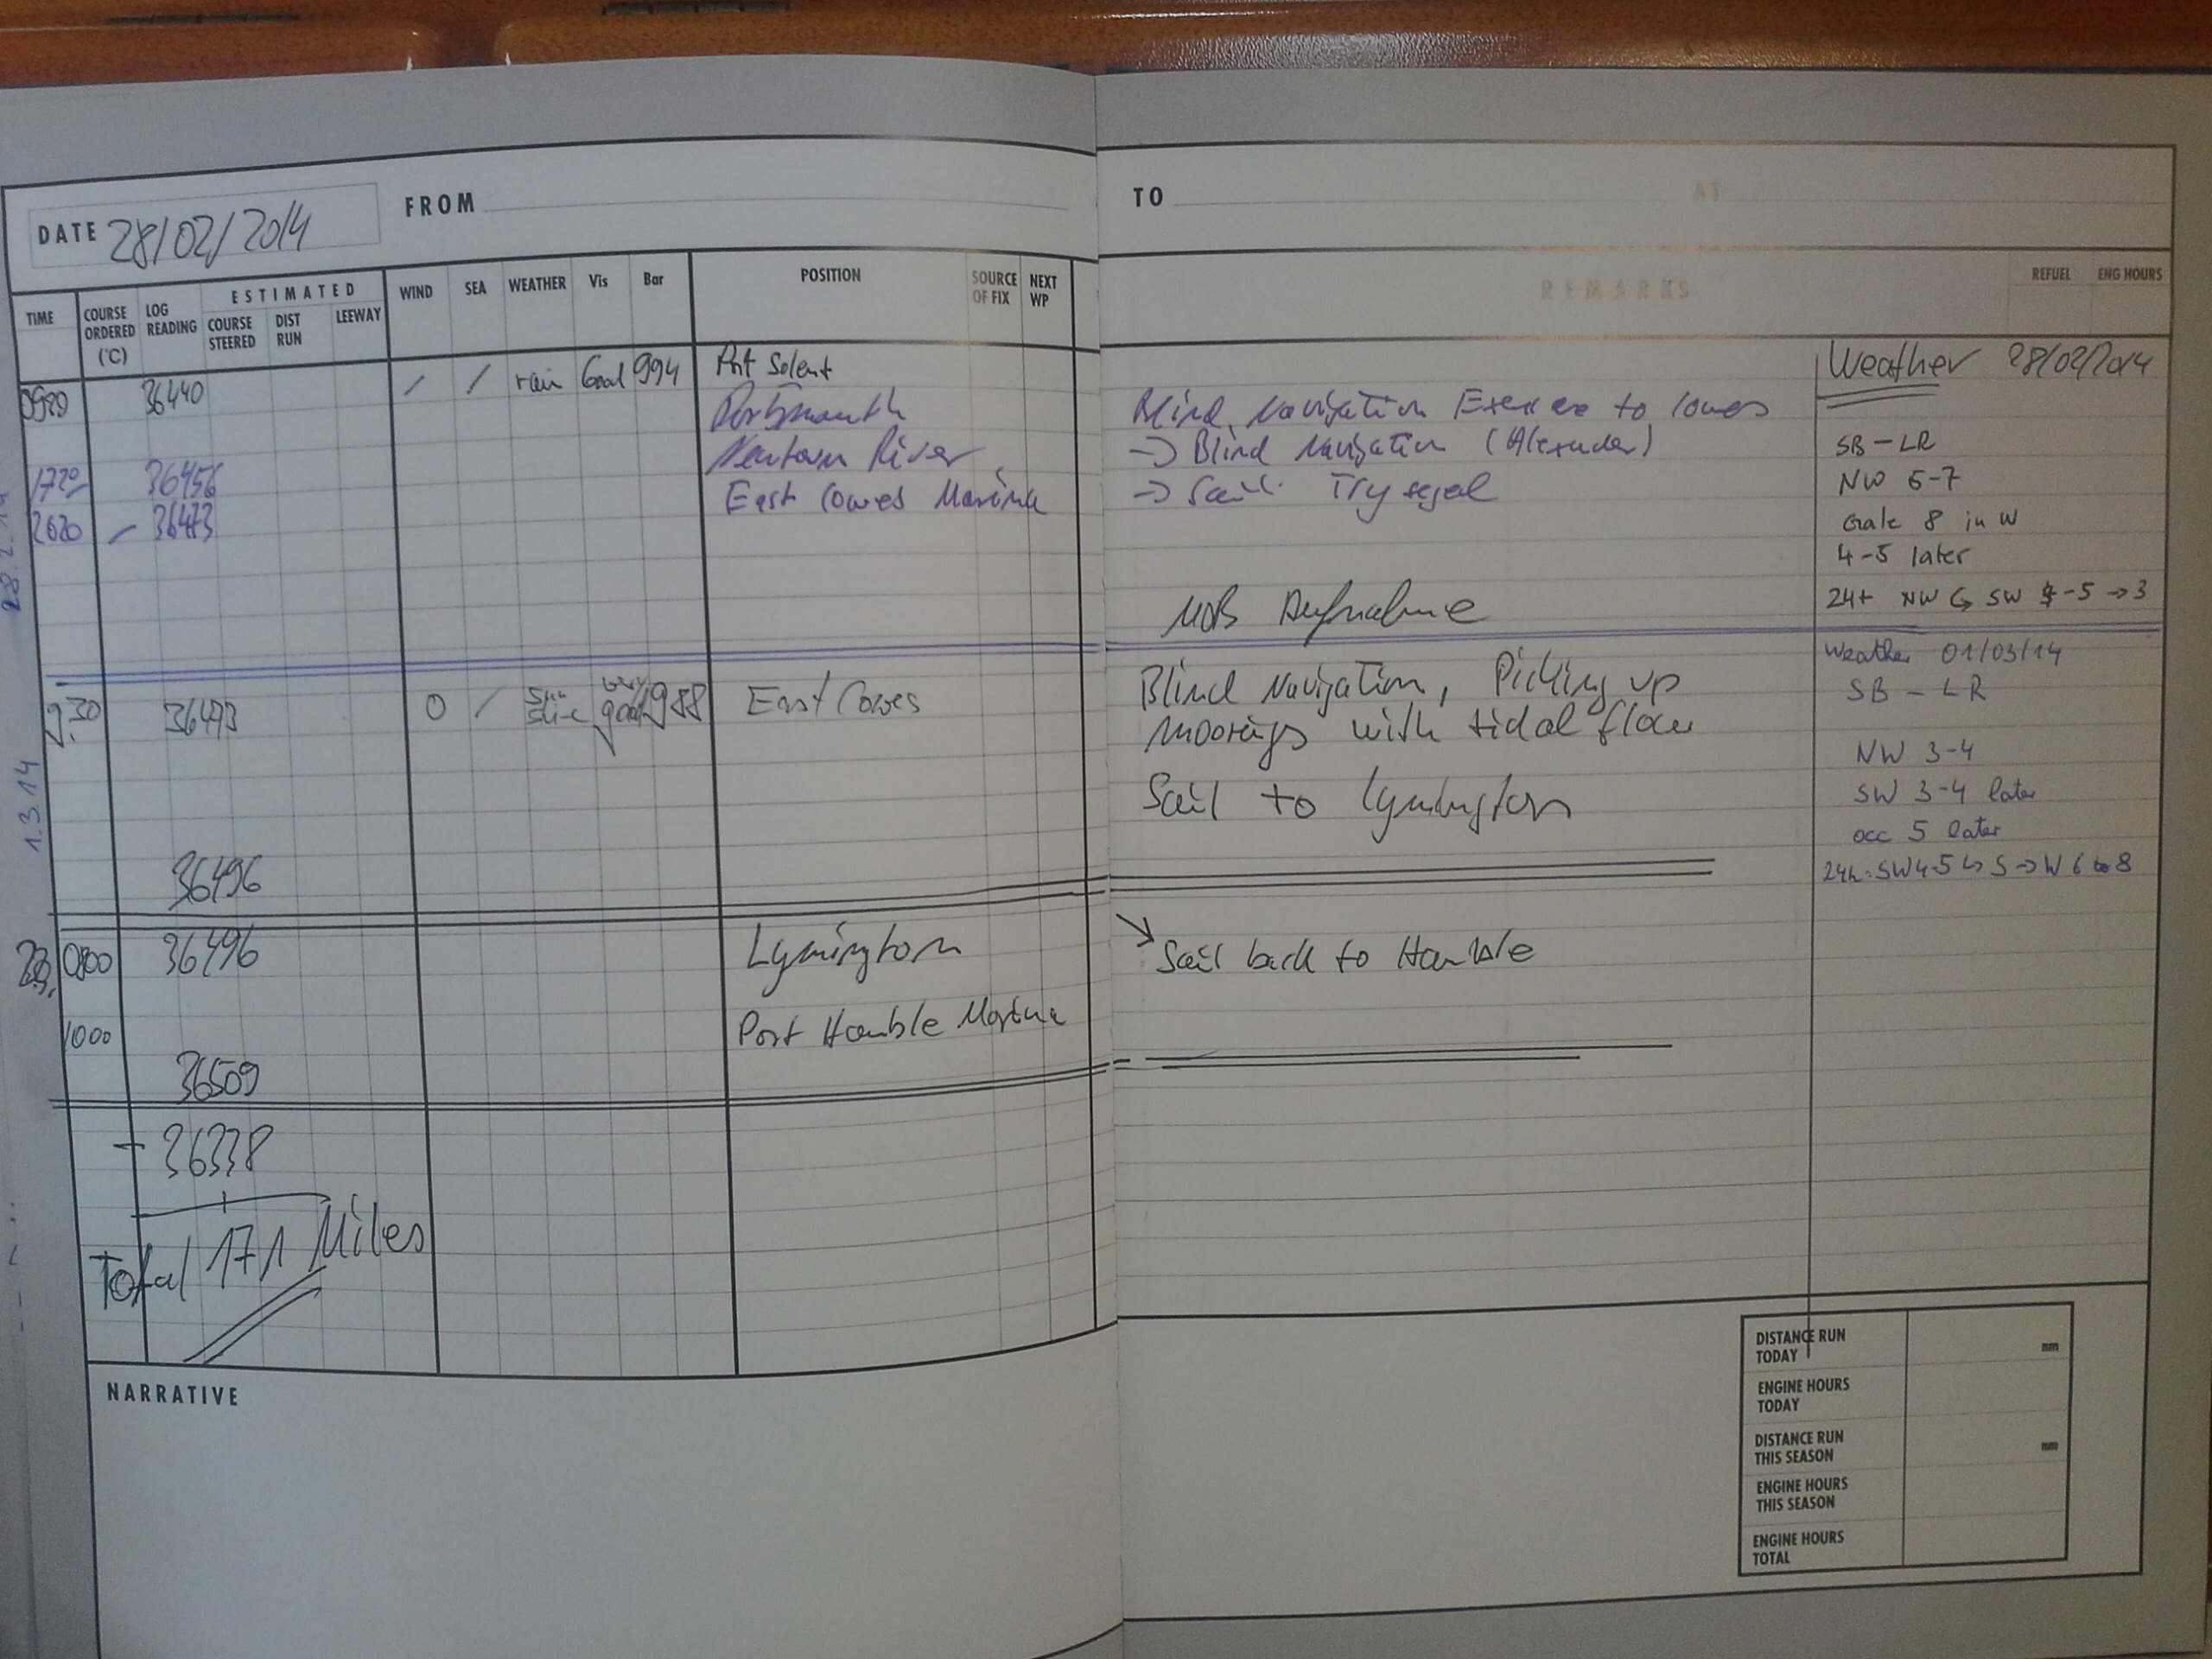 DATE 28/02/2014 FROM
TO
AT
TIME COURSE ORDERED (°C) LOG READING ESTIMATED COURSE STEERED DIST RUN LEEWAY WIND SEA WEATHER Vis Bar POSITION SOURCE OF FIX NEXT WP
REMARKS REFUEL ENG HOURS
36440 / / rain Good 994 Port Solent
Portsmouth
Newtown River
1720 36456 East Cowes Marina
2020 - 36473
28.2.14
Blind Navigation Exercise to Cowes
-> Blind Navigation (Alexander)
-> Sail: Trysegel
MOB Aufnahme
Weather 28/02/2014
SB - LR
NW 6-7
Gale 8 in W
4-5 later
24+ NW SW -5 -> 3
1.3.14
9.30 36473 0 / Sun Shine very good 988 East Cowes
36496
Blind Navigation, Picking up
moorings with tidal flow
Sail to Lymington
Weather 01/03/14
SB - LR
NW 3-4
SW 3-4 later
occ 5 later
24h: SW 4-5 S -> W 6 to 8
0800 36496 Lymington
1000 Port Hamble Marina
36509
Sail back to Hamble
- 36338
Total 171 Miles
NARRATIVE
DISTANCE RUN TODAY nm
ENGINE HOURS TODAY
DISTANCE RUN THIS SEASON nm
ENGINE HOURS THIS SEASON
ENGINE HOURS TOTAL